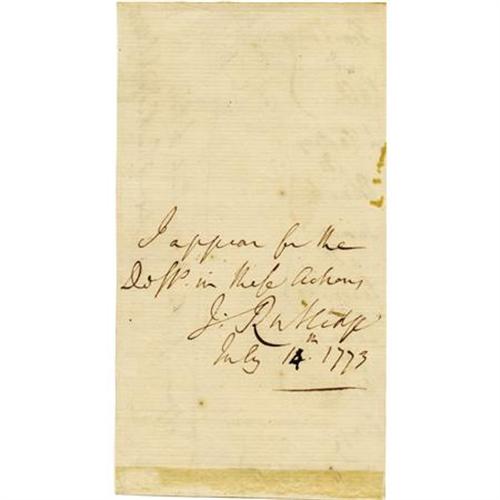 I appear for the
Deft. in these Actions
J: Rutledge
July 14th. 1773